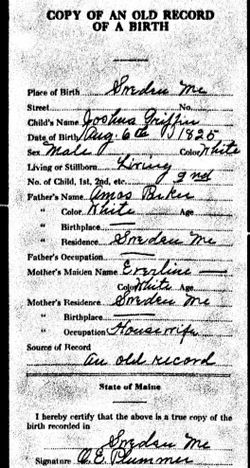 COPY OF AN OLD RECORD
OF A BIRTH
Place of Birth Sweden Me
Street No.
Child's Name Joshua Griffin
Date of Birth Aug. 6th 1825
Sex Male Color White
Living or Stillborn Living
No. of Child, 1st, 2nd, etc. 3nd
Father's Name Amos Parker
" Color White Age
" Birthplace
" Residence Sweden Me
Father's Occupation
Mother's Maiden Name Everline
Color White Age
Mother's Residence Sweden Me
" Birthplace
" Occupation Housewife
Source of Record
An old record
State of Maine
I hereby certify that the above is a true copy of the
birth recorded in
Sweden Me
Signature O.E. Plummer